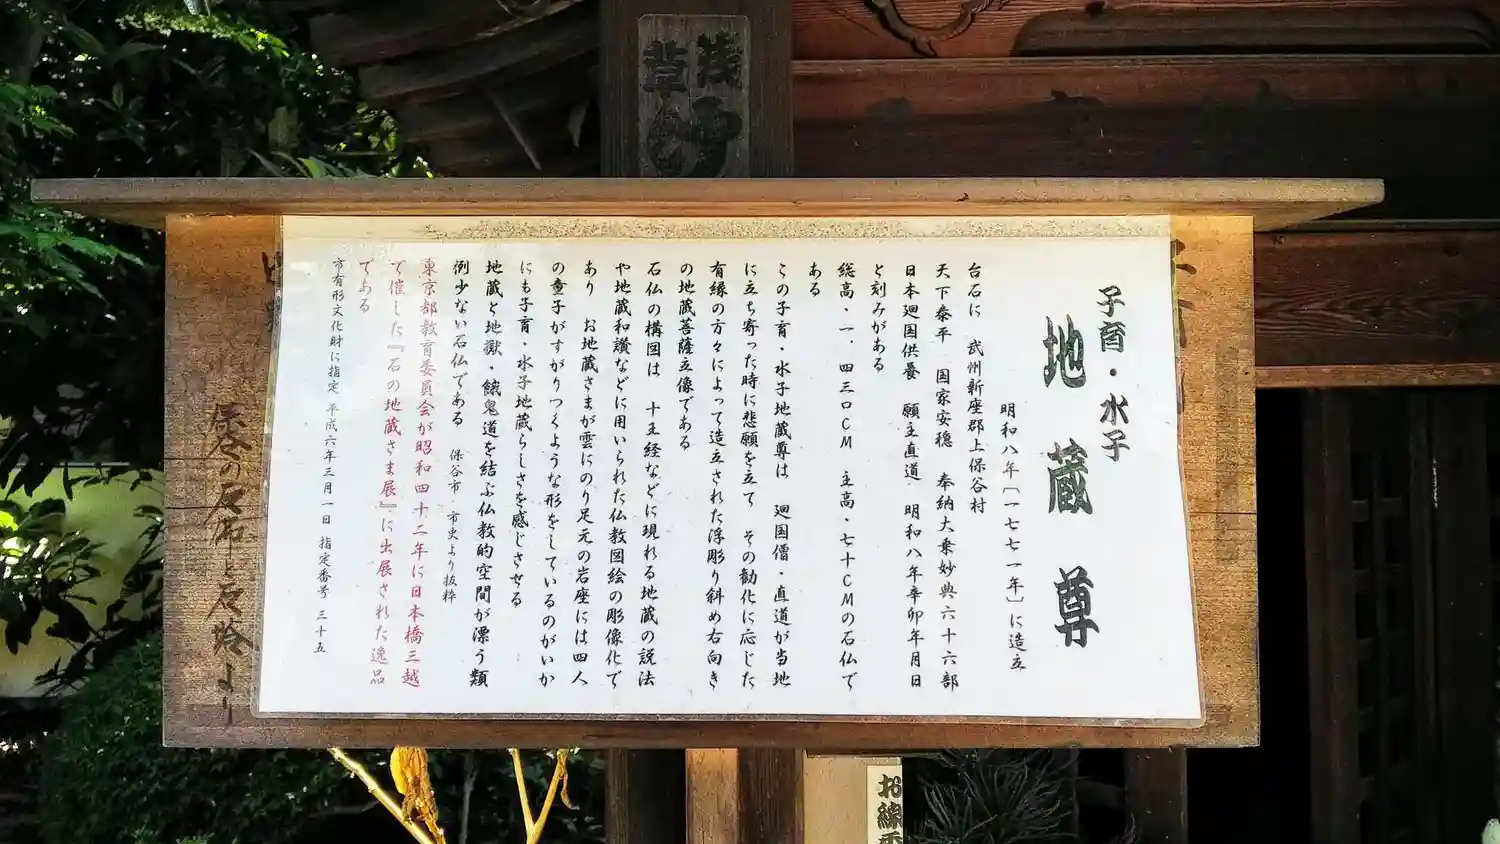 子育・水子
地蔵尊
明和八年〔一七七一年〕に造立
台石に 武州新座郡上保谷村
天下泰平 国家安穏 奉納大乗妙典六十六部
日本廻国供養 願主直道 明和八年辛卯年月日
と刻みがある
総高・一．四三〇CM 主高・七十CMの石仏で
ある
この子育・水子地蔵尊は 廻国僧・直道が当地
に立ち寄った時に悲願を立て その勧化に応じた
有縁の方々によって造立された浮彫り斜め右向き
の地蔵菩薩立像である
石仏の構図は 十王経などに現れる地蔵の説法
や地蔵和讃などに用いられた仏教図絵の彫像化で
あり お地蔵さまが雲にのり足元の岩座には四人
の童子がすがりつくような形をしているのがいか
にも子育・水子地蔵らしさを感じさせる
地蔵と地獄・餓鬼道を結ぶ仏教的空間が漂う類
例少ない石仏である 保谷市 市史より抜粋
東京都教育委員会が昭和四十二年に日本橋三越
で催した『石の地蔵さま展』に出展された逸品
である
市有形文化財に指定 平成六年三月一日 指定番号 三十五
保谷の石佛と石塔より
お線香